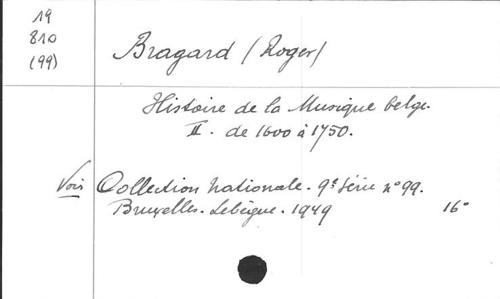 19
810
(99)
Bragard (Roger)
Histoire de la Musique belge.
II. de 1600 à 1750.
Voir Collection Nationale. 9e série n° 99.
Bruxelles. Lebègue. 1949 16°